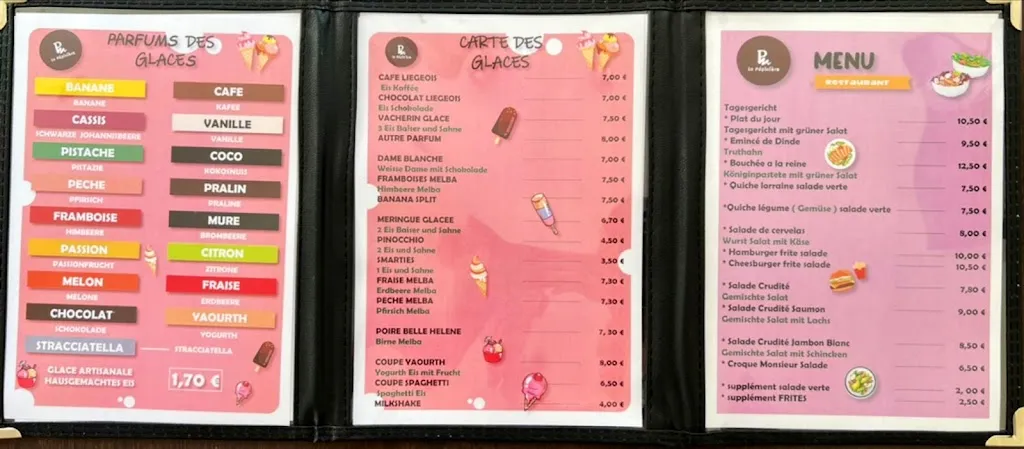 la Pépinière
PARFUMS DES
GLACES
BANANE
BANANE
CASSIS
SCHWARZE JOHANNISBEERE
PISTACHE
PISTAZIE
PECHE
PFIRSICH
FRAMBOISE
HIMBEERE
PASSION
PASSIONFRUCHT
MELON
MELONE
CHOCOLAT
SCHOKOLADE
STRACCIATELLA
STRACCIATELLA
CAFE
KAFEE
VANILLE
VANILLE
COCO
KOKOSNUSS
PRALIN
PRALINE
MURE
BROMBEERE
CITRON
ZITRONE
FRAISE
ERDBEERE
YAOURTH
YOGURTH
GLACE ARTISANALE
HAUSGEMACHTES EIS
1,70 €
la Pépinière
CARTE DES
GLACES
CAFE LIEGEOIS 7,00 €
Eis Kaffée
CHOCOLAT LIEGEOIS 7,00 €
Eis Schokolade
VACHERIN GLACE 7,50 €
3 Eis Baiser und Sahne
AUTRE PARFUM 8,00 €
DAME BLANCHE 7,00 €
Weisse Dame mit Schokolade
FRAMBOISES MELBA 7,50 €
Himbeere Melba
BANANA SPLIT 7,50 €
MERINGUE GLACEE 6,70 €
2 Eis Baiser und Sahne
PINOCCHIO 4,50 €
2 Eis und Sahne
SMARTIES 3,50 €
1 Eis und Sahne
FRAISE MELBA 7,30 €
Erdbeere Melba
PECHE MELBA 7,30 €
Pfirsich Melba
POIRE BELLE HELENE 7,30 €
Birne Melba
COUPE YAOURTH 8,00 €
Yogurth Eis mit Frucht
COUPE SPAGHETTI 6,50 €
Spaghetti Eis
MILKSHAKE 4,00 €
la Pépinière
MENU
RESTAURANT
Tagesgericht
* Plat du jour 10,50 €
Tagesgericht mit grüner Salat
* Emincé de Dinde 9,50 €
Truthahn
* Bouchée a la reine 12,50 €
Königinpastete mit grüner Salat
* Quiche lorraine salade verte 7,50 €
*Quiche légume ( Gemüse ) salade verte 7,50 €
* Salade de cervelas 8,00 €
Wurst Salat mit Käse
* Hamburger frite salade 10,00 €
* Cheesburger frite salade 10,50 €
* Salade Crudité 7,80 €
Gemischte Salat
* Salade Crudité Saumon 9,00 €
Gemischte Salat mit Lachs
* Salade Crudité Jambon Blanc 8,50 €
Gemischte Salat mit Schincken
* Croque Monsieur Salade 6,50 €
* supplément salade verte 2,00 €
* supplément FRITES 2,50 €